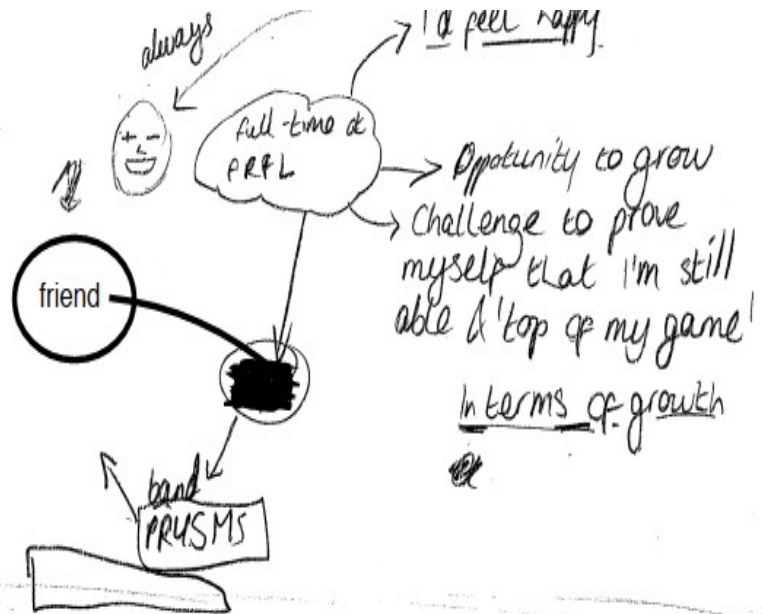 always
I'd feel happy.
full-time at
PRFL
Oppotunity to grow
Challenge to prove
myself that I'm still
able & 'top of my game'
In terms of growth
friend
band
PRYSMS